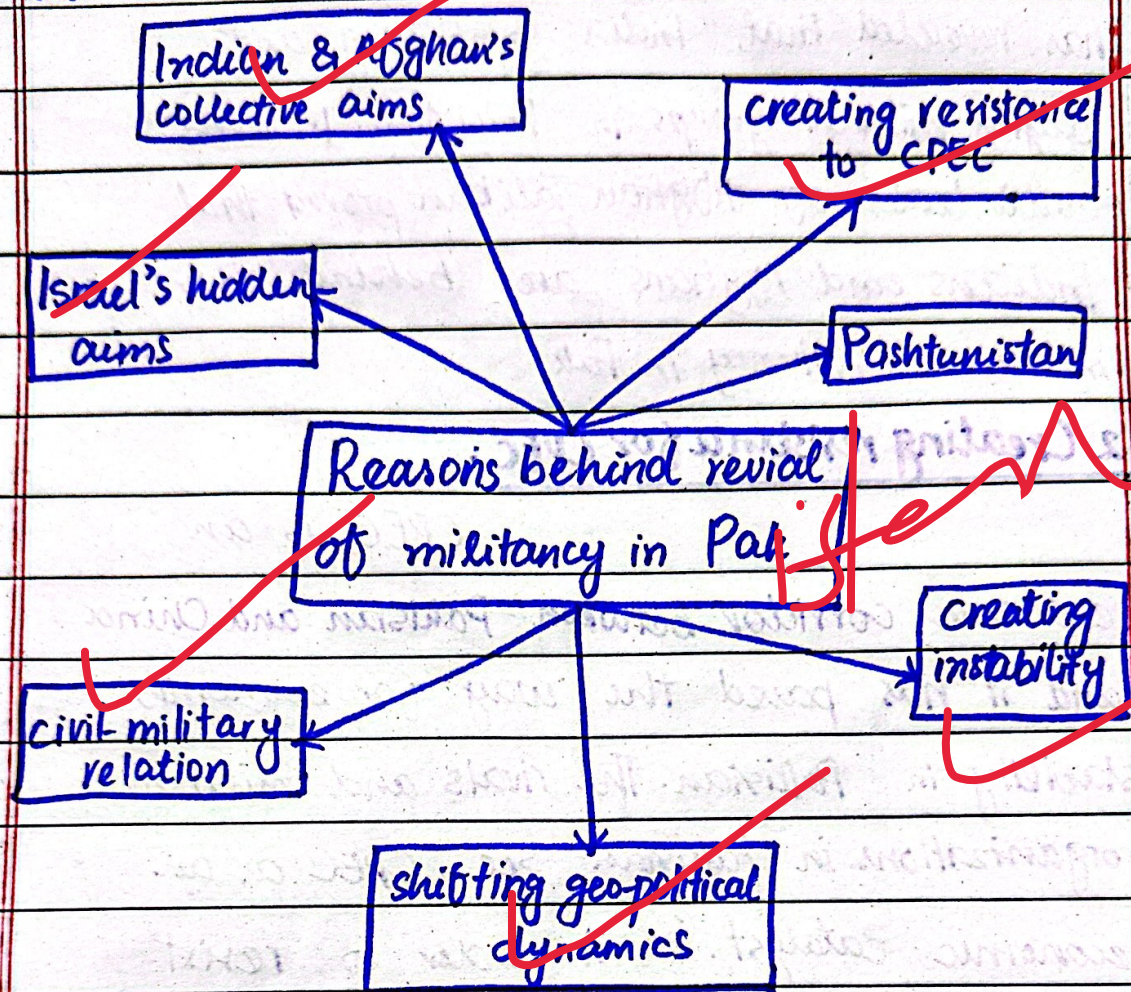 Indian & Afghan's
collective aims
creating resistance
to CPEC
Israel's hidden
aims
Pashtunistan
Reasons behind revial
of militancy in Pak
creating
instability
civil-military
relation
shifting geo-political
dynamics